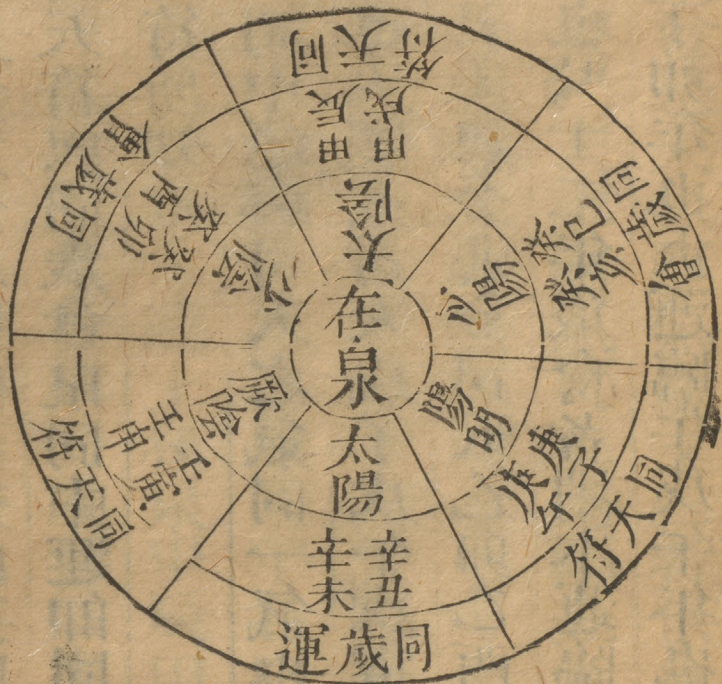 在泉
太陰
甲辰
甲戌
同天符
少陽
癸巳
癸亥
同歲會
陽明
庚子
庚年
同天符
太陽
辛丑
辛未
同歲運
厥陰
壬寅
壬申
同天符
少陰
癸卯
癸酉
同歲會